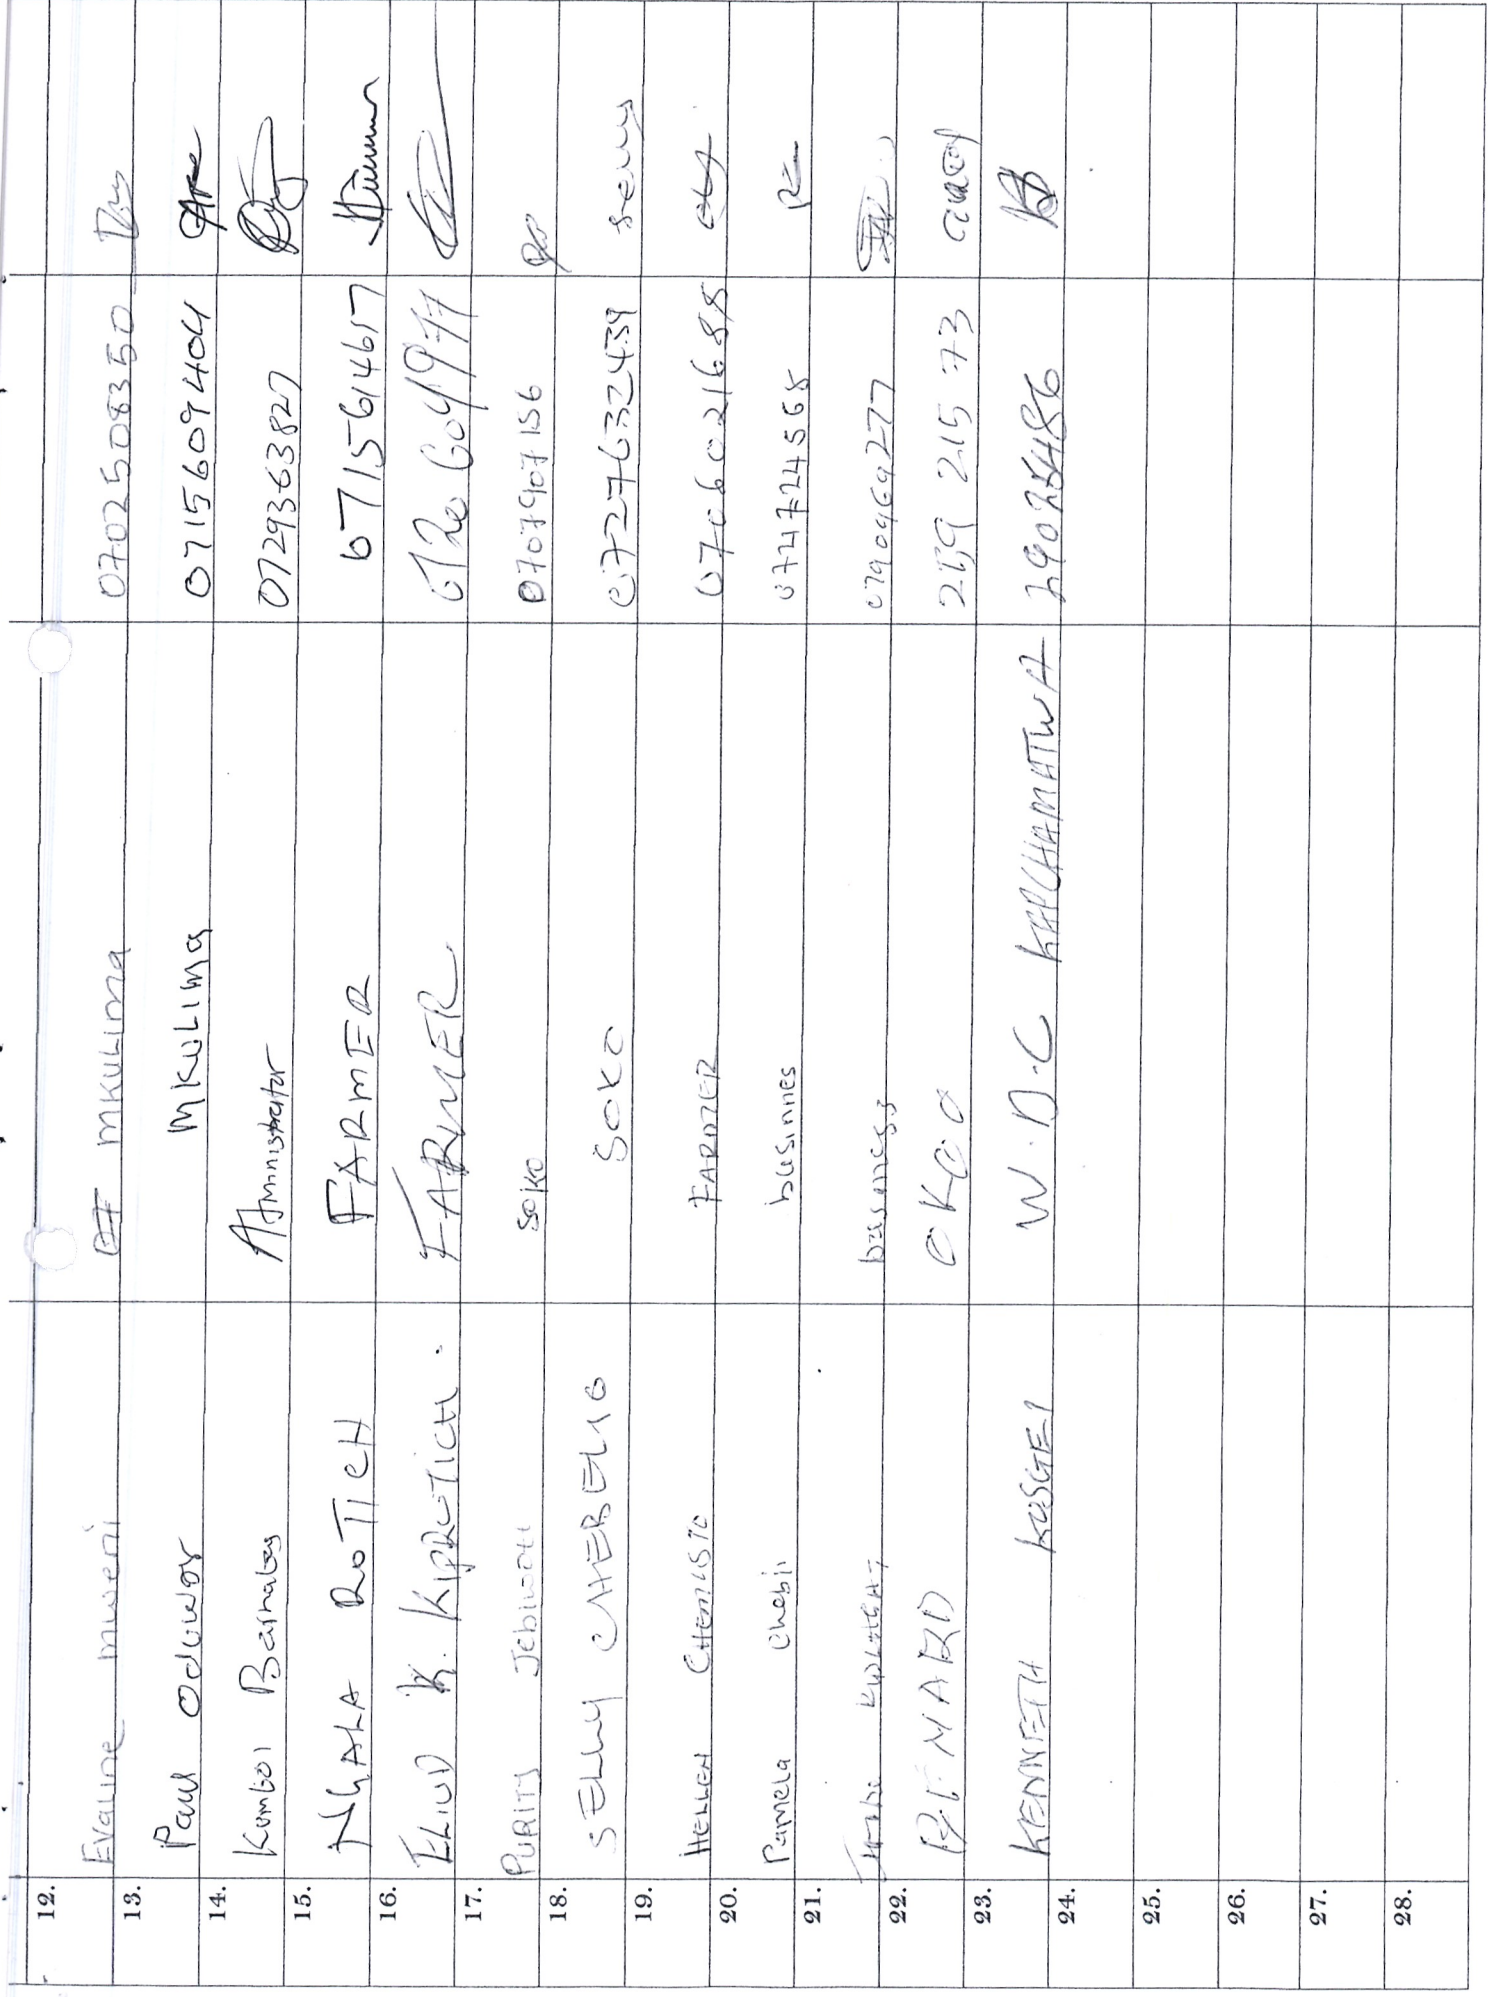 12. Evaline mweni mkulima 0702508350
13. Paul Oduwor mkulima 0715609404
14. Kumboi Barnabas Administrator 0729363827
15. NGALA ROTICH FARMER 0715614617
16. ELIUD K. KIPROTICH. FARMER
17. PURITY Jebiwott soko 0707907156
18. SELLY CHEBELIO SOKO 0727632439
19. HELLEN FARMER 0706021688
20. Pamela chebii businnes 0724724565
21. business 0790969277
22. 219 215 73
23. KENNETH KOSGEI W.D.C KAPCHAMATWA
24.
25.
26.
27.
28.